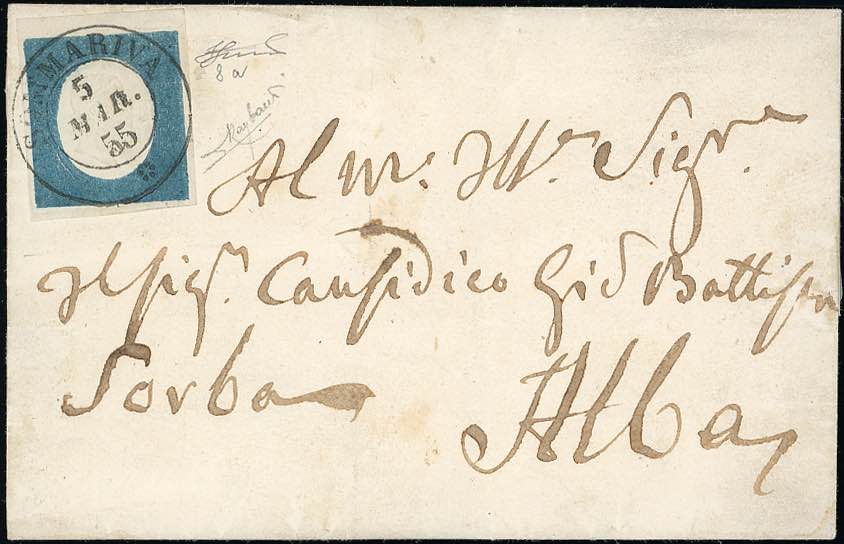 SOMMARIVA
5
MAR.
55
8 a
Raybaud
Al M.to Ill.e Sig.r
Il Sig.r Causidico Gio Battista
Sorba
Alba